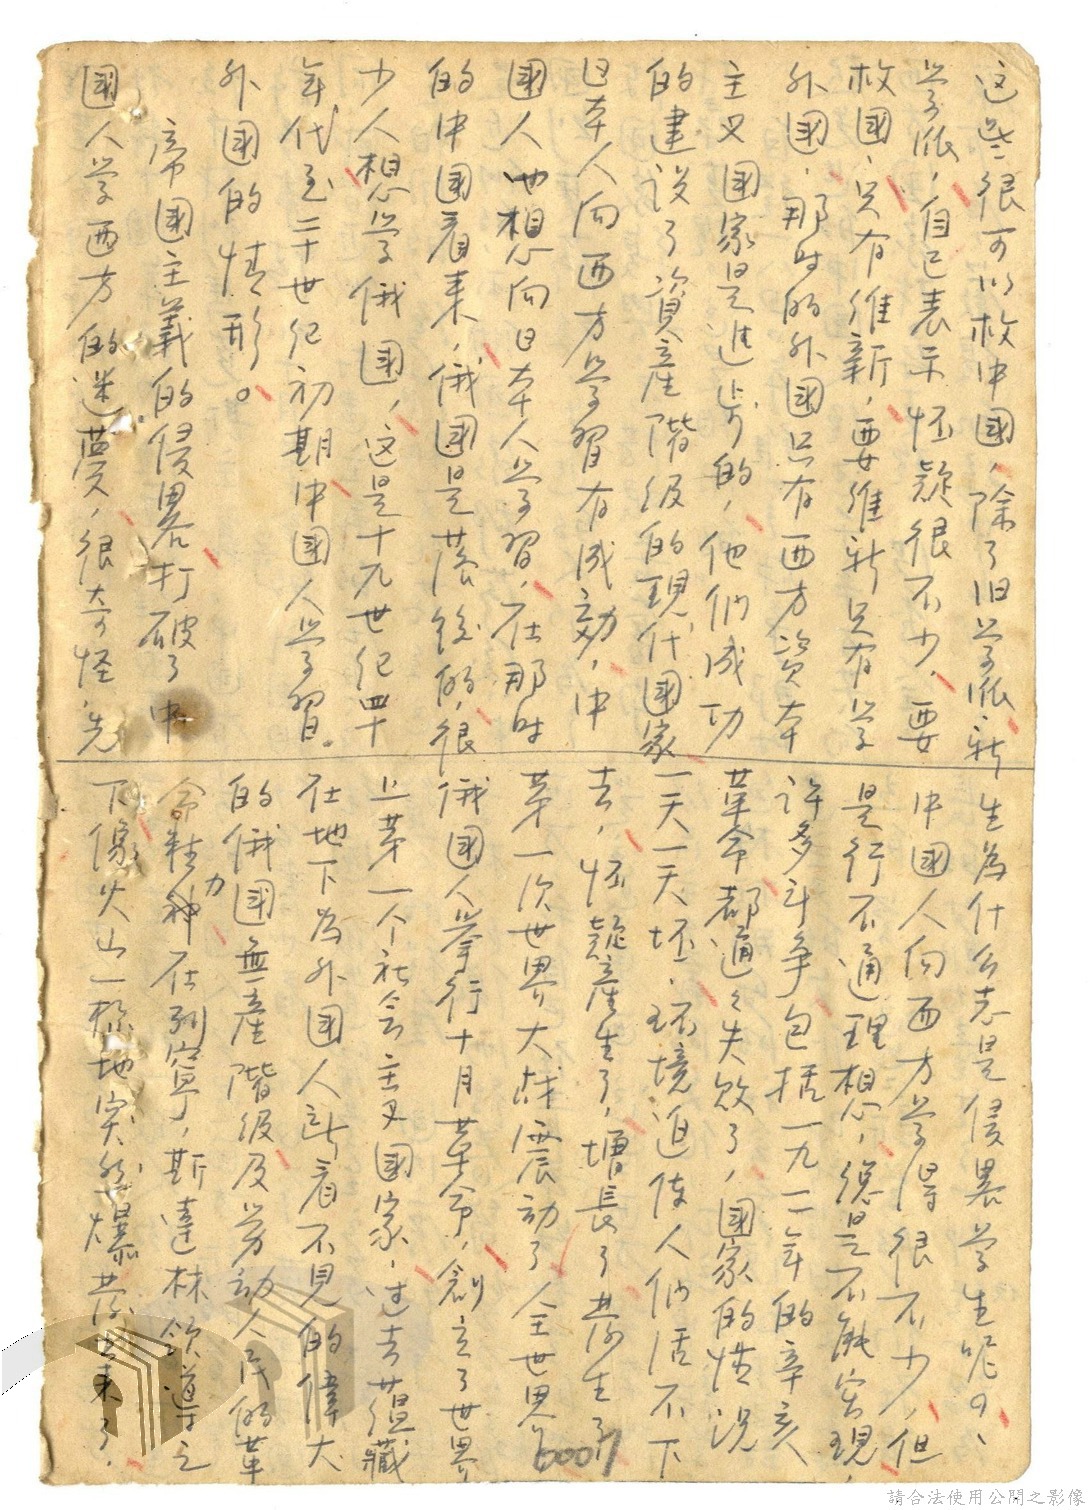 这些很可以救中國，除了旧学派，新
学派，自己表示怀疑很不少，要
救國，只有維新，要維新只有学
外國，那时的外國只有西方资本
主义國家是進步的，他們成功
的建设了資産階级的現代國家
日本人向西方学習有成効，中
國人也想向日本人学習，在那时
的中国看来，俄國是落後的，很
少人想学俄國，这是十九世纪四十
年代至二十世纪初期中國人学習
外國的情形。
帝國主義的侵畧打破了中
國人学西方的迷夢，很奇怪，先
生為什么志是侵畧学生呢？，
中國人向西方学得很不少，但
是行不通，理想，總是不能实現，
許多斗争包括一九一一年的辛亥
革命都通通失敗了，國家的情况
一天一天坏，环境迫使人們活不下
去，怀疑産生了，增長了，发生了
第一次世界大战震动了全世界，
俄國人举行十月革命，創立了世界
上第一个社会主义國家，过去蕴藏
在地下為外國人所看不見的偉大
的俄國無産階级及劳动人民的革
命精力在列寧，斯達林领導之
下像火山一樣地突然爆发出来了，
0007
請合法使用公開之影像